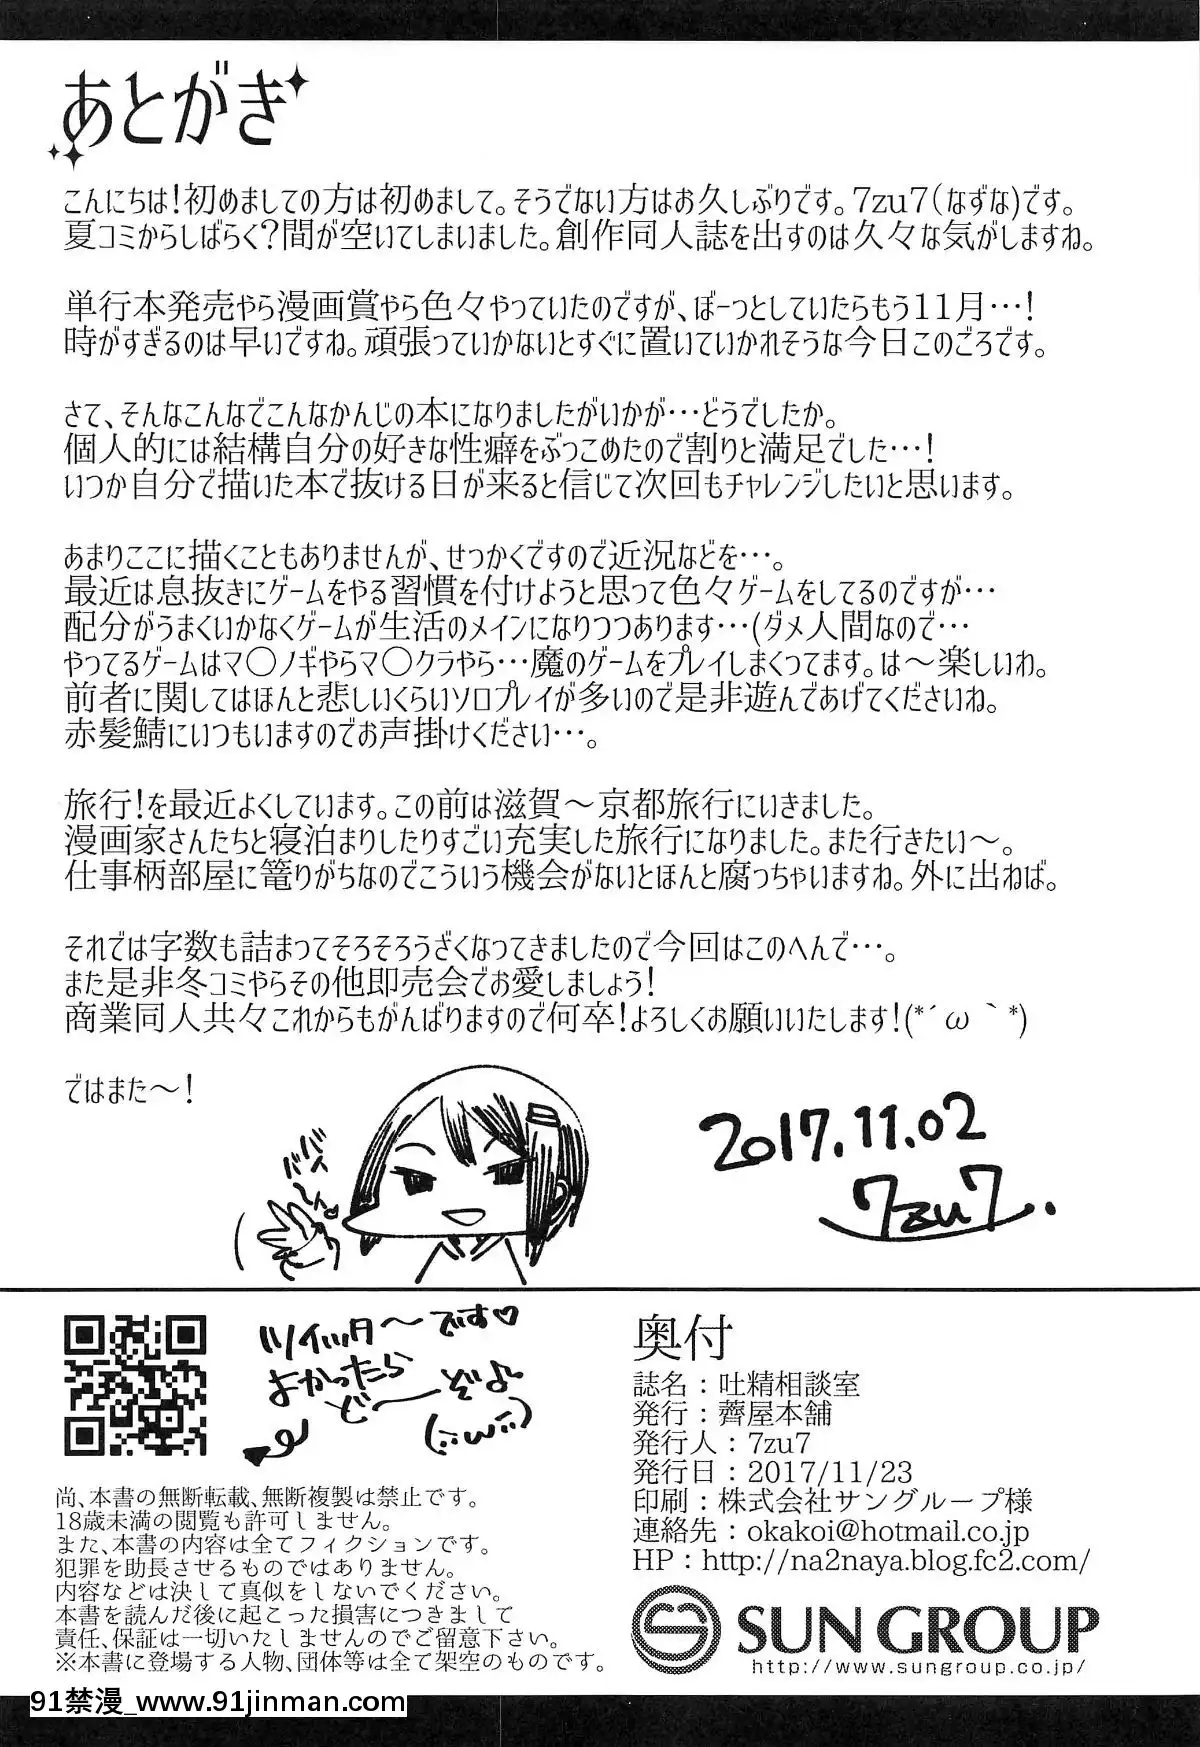 あとがき
こんにちは!初めましての方は初めまして。そうでない方はお久しぶりです。7zu7(なずな)です。
夏コミからしばらく?間が空いてしまいました。創作同人誌を出すのは久々な気がしますね。
単行本発売やら漫画賞やら色々やっていたのですが、ぼーっとしていたらもう11月…!
時がすぎるのは早いですね。頑張っていかないとすぐに置いていかれそうな今日このごろです。
さて、そんなこんなでこんなかんじの本になりましたがいかが…どうでしたか。
個人的には結構自分の好きな性癖をぶっこめたので割りと満足でした…!
いつか自分で描いた本で抜ける日が来ると信じて次回もチャレンジしたいと思います。
あまりここに描くこともありませんが、せっかくですので近況などを…。
最近は息抜きにゲームをやる習慣を付けようと思って色々ゲームをしてるのですが…
配分がうまくいかなくゲームが生活のメインになりつつあります…(ダメ人間なので…
やってるゲームはマ〇ノギやらマ〇クラやら…魔のゲームをプレイしまくってます。は〜楽しいわ。
前者に関してはほんと悲しいくらいソロプレイが多いので是非遊んであげてくださいね。
赤髪鯖にいつもいますのでお声掛けください…。
旅行!を最近よくしています。この前は滋賀〜京都旅行にいきました。
漫画家さんたちと寝泊まりしたりすごい充実した旅行になりました。また行きたい〜。
仕事柄部屋に篭りがちなのでこういう機会がないとほんと腐っちゃいますね。外に出ねば。
それでは字数も詰まってそろそろうざくなってきましたので今回はこのへんで…。
また是非冬コミやらその他即売会でお愛しましょう!
商業同人共々これからもがんばりますので何卒!よろしくお願いいたします!(*´ω｀*)
ではまた〜!
バイバーイ
2017.11.02
7zu7.
ツイッタ〜です♡
よかったら
ど〜ぞ♪
(;;ω;;)
尚、本書の無断転載、無断複製は禁止です。
18歳未満の閲覧も許可しません。
また、本書の内容は全てフィクションです。
犯罪を助長させるものではありません。
内容などは決して真似をしないでください。
本書を読んだ後に起こった損害につきまして
責任、保証は一切いたしませんのでご留意下さい。
※本書に登場する人物、団体等は全て架空のものです。
奥付
誌名：吐精相談室
発行：薺屋本舗
発行人：7zu7
発行日：2017/11/23
印刷：株式会社サングループ様
連絡先：okakoi@hotmail.co.jp
HP：http://na2naya.blog.fc2.com/
SUN GROUP
http://www.sungroup.co.jp/
91禁漫_www.91jinman.com